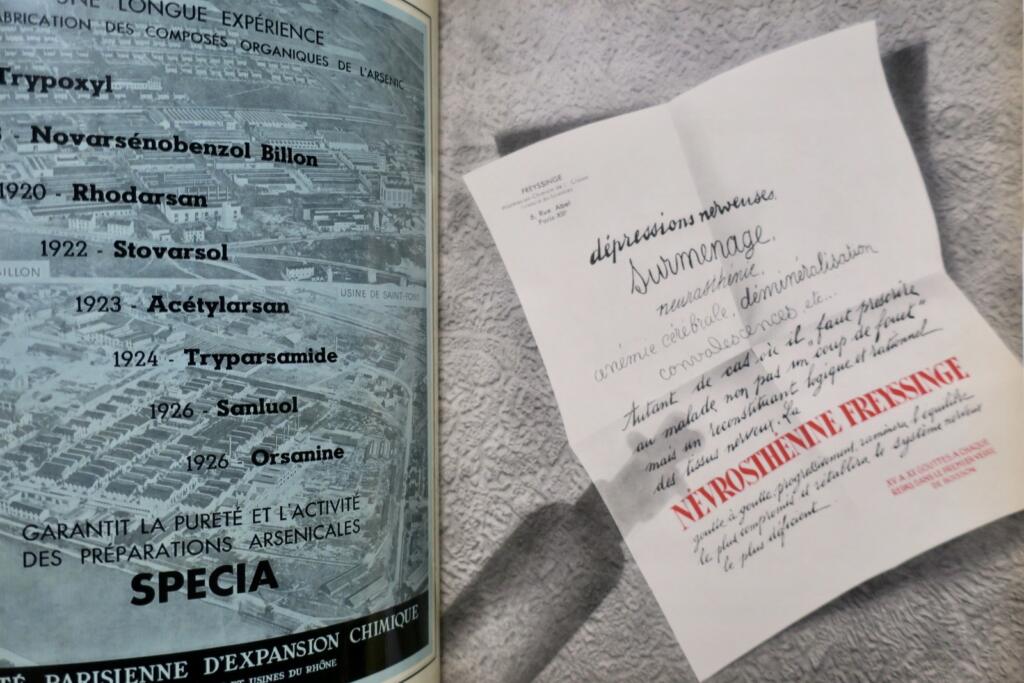 UNE LONGUE EXPÉRIENCE
FABRICATION DES COMPOSÉS ORGANIQUES DE L'ARSENIC
Trypoxyl
Novarsénobenzol Billon
1920 - Rhodarsan
1922 - Stovarsol
BILLON
USINE DE SAINT-FONS
1923 - Acétylarsan
1924 - Tryparsamide
1926 - Sanluol
1926 - Orsanine
GARANTIT LA PURETÉ ET L'ACTIVITÉ
DES PRÉPARATIONS ARSENICALES
SPECIA
PARISIENNE D'EXPANSION CHIMIQUE
USINES DU RHÔNE
FREYSSINGE
6, Rue Abel
Paris XIIe
dépressions nerveuses,
Surmenage,
neurasthénie,
anémie cérébrale, déminéralisation
convalescences, etc...
Autant de cas où il faut prescrire
au malade non pas un "coup de fouet"
mais un reconstituant logique et rationnel
des tissus nerveux. La
NÉVROSTHÉNINE FREYSSINGE
goutte à goutte, progressivement, ramènera l'équilibre
le plus compromis et rétablira le système nerveux
le plus déficient
XV A XX GOUTTES A CHAQUE
REPAS DANS LE PREMIER VERRE
DE BOISSON